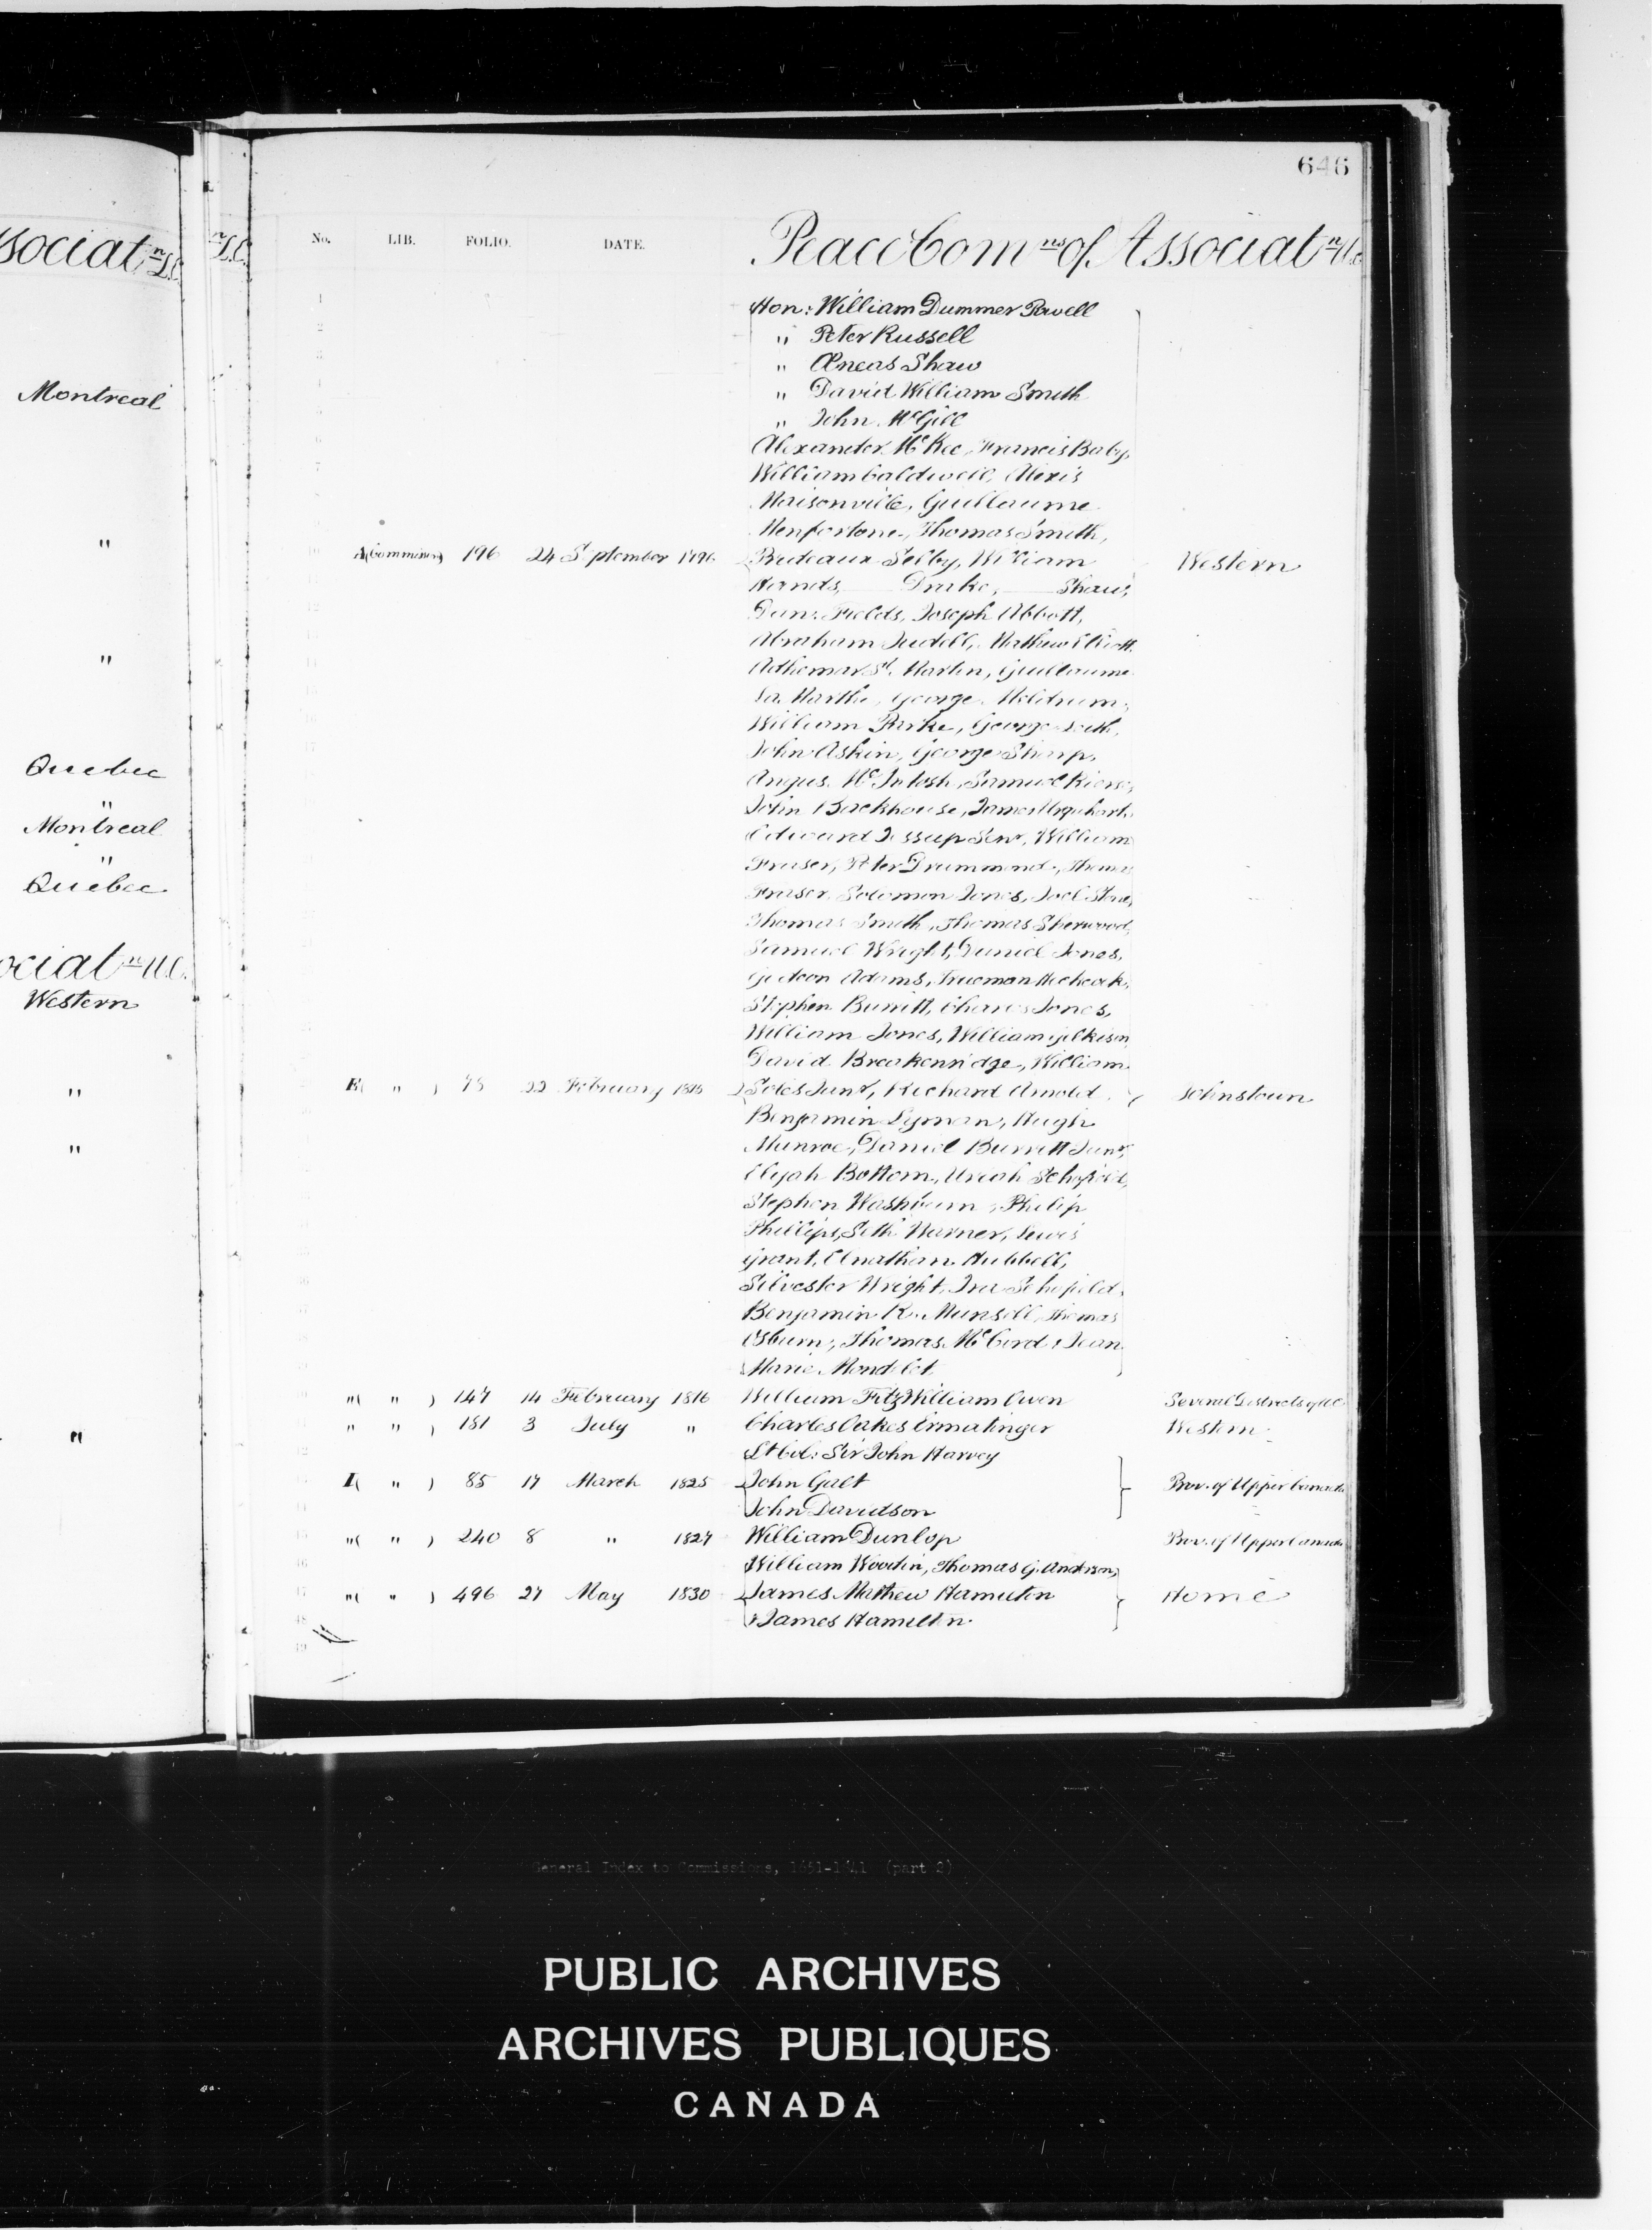 646
sociatn L.C. n L.C.
No. LIB. FOLIO. DATE. Peace Comns of Associatn U.C.
Hon: William Dummer Powell
" Peter Russell
" Æneas Shaw
Montreal " David William Smith
" John McGill
Alexander McKee, Francis Baby,
William Caldwell, Alexis
Maisonville, Guillaume
" Monforton, Thomas Smith,
A (Commissns) 196 24 September 1796 Prideaux Selby, William Western
Hands, —— Drake, —— Shaw,
Fields, Joseph Abbott,
Abraham Iredell, Mathew Elliott
" Adhemar St. Martin, Guillaume
La Mothe, George Meldrum,
William Parke, George Leith,
Quebec John Askin, George Sharp,
" Angus McIntosh, Samuel
Montreal John Backhouse, James Urquhart,
" Edward Jessup Senr, William
Quebec Fraser, Peter Drummond, Thomas
Fraser, Solomon Jones, Joel Stone,
Thomas Smith, Thomas Sherwood,
ociatn U.C. Samuel Wright, Daniel Jones,
Western Gideon Adams, Trueman Hichcock,
Stephen Burritt, Charles Jones,
William Jones, William Gilkison
David Breakenridge, William
" E ( " ) 75 22 February 1815 Soles Junr, Richard Arnold, Johnstown
Benjamin Lyman, Hugh
" Munroe, Daniel Burritt Junr,
Elijah Bottom, Uriah Schofield,
Stephen Washburn, Philip
Phillips, Seth Warner, Lewis
Grant, Elnathan Hubbell,
Silvester Wright, Ira Schofield,
Benjamin R. Munsell, Thomas
Osburn, Thomas McCord, Jean
Marie Mondelet
" ( " ) 147 14 February 1816 William FitzWilliam Owen Several Districts of U.C.
" " ( " ) 181 3 July " Charles Oakes Ermatinger Western
Lt Col: Sir John Harvey
I ( " ) 85 17 March 1825 John Galt Prov. of Upper Canada
John Davidson
" ( " ) 240 8 " 1827 William Dunlop Prov. of Upper Canada
William Woodin, Thomas G. Anderson,
" ( " ) 496 27 May 1830 James Mathew Hamilton Home
& James Hamilton
General Index to Commissions, 1651-1841 (part 2)
PUBLIC ARCHIVES
ARCHIVES PUBLIQUES
CANADA